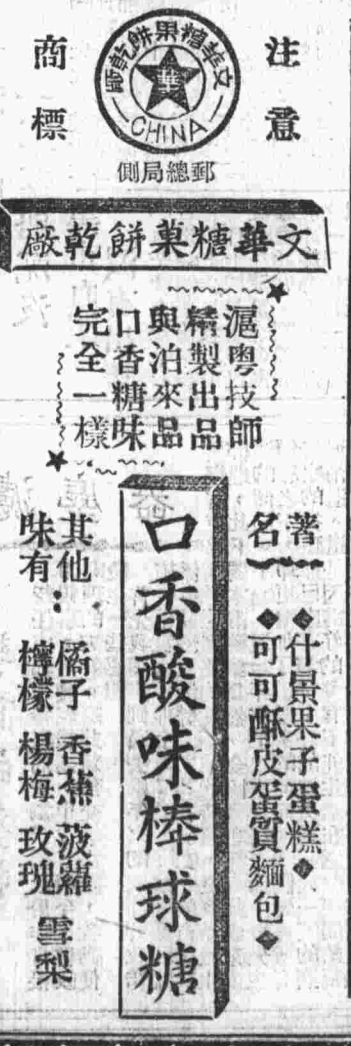 注意
商標
文華糖果餅乾廠
華
CHINA
郵總局側
文華糖菓餅乾廠
滬粵技師
精製出品
與泊來品
口香糖味
完全一樣
著名
什景果子蛋糕
可可酥皮蛋質麵包
口香酸味棒球糖
其他味有:
橘子 香蕉 菠蘿
檸檬 楊梅 玫瑰
雪梨